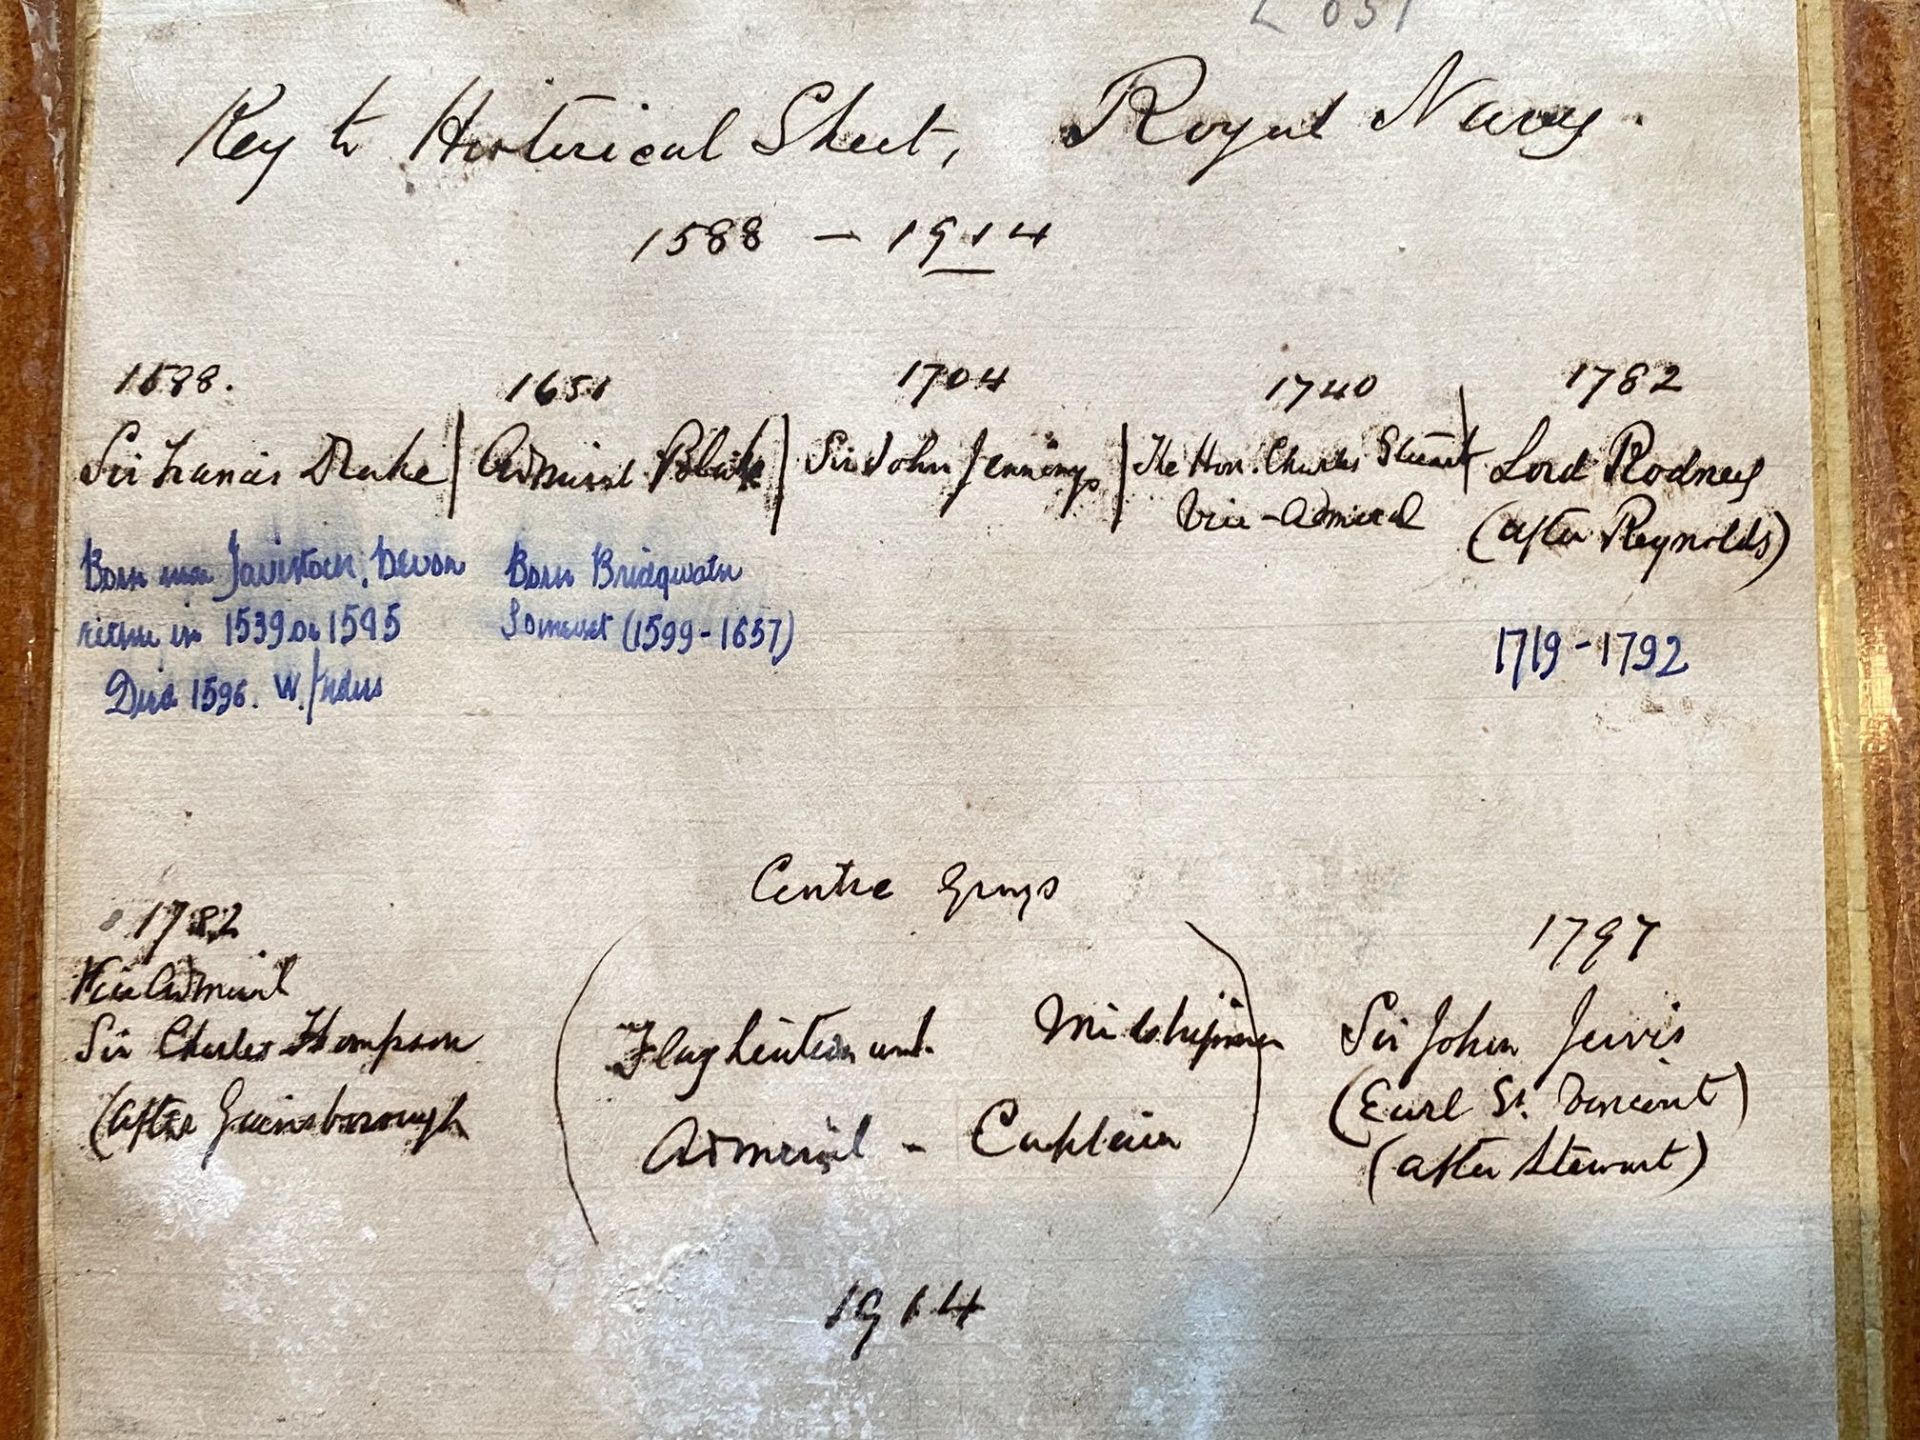 L 651
Key to Historical Sheet, Royal Navy.
1588 - 1914
1588.
Sir Francis Drake
Born near Tavistock, Devon
either in 1539 or 1545
Died 1596. W. Indies
1651
Admiral Blake
Born Bridgwater
Somerset (1599-1657)
1704
Sir John Jennings
1740
The Hon. Charles Stuart
Vice-Admiral
1782
Lord Rodney
(after Reynolds)
1719-1792
1782
Vice Admiral
Sir Charles Thompson
(after Gainsborough
Centre Group
Flag Lieutenant. Midshipman
Admiral - Captain
1797
Sir John Jervis
(Earl St. Vincent)
(after Stewart)
1914